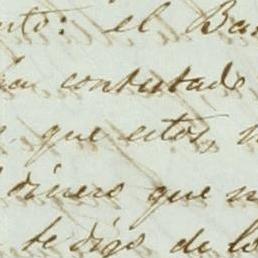 nto: el Ba
han contestado
que estos, n
dinero que n
te digo de lo